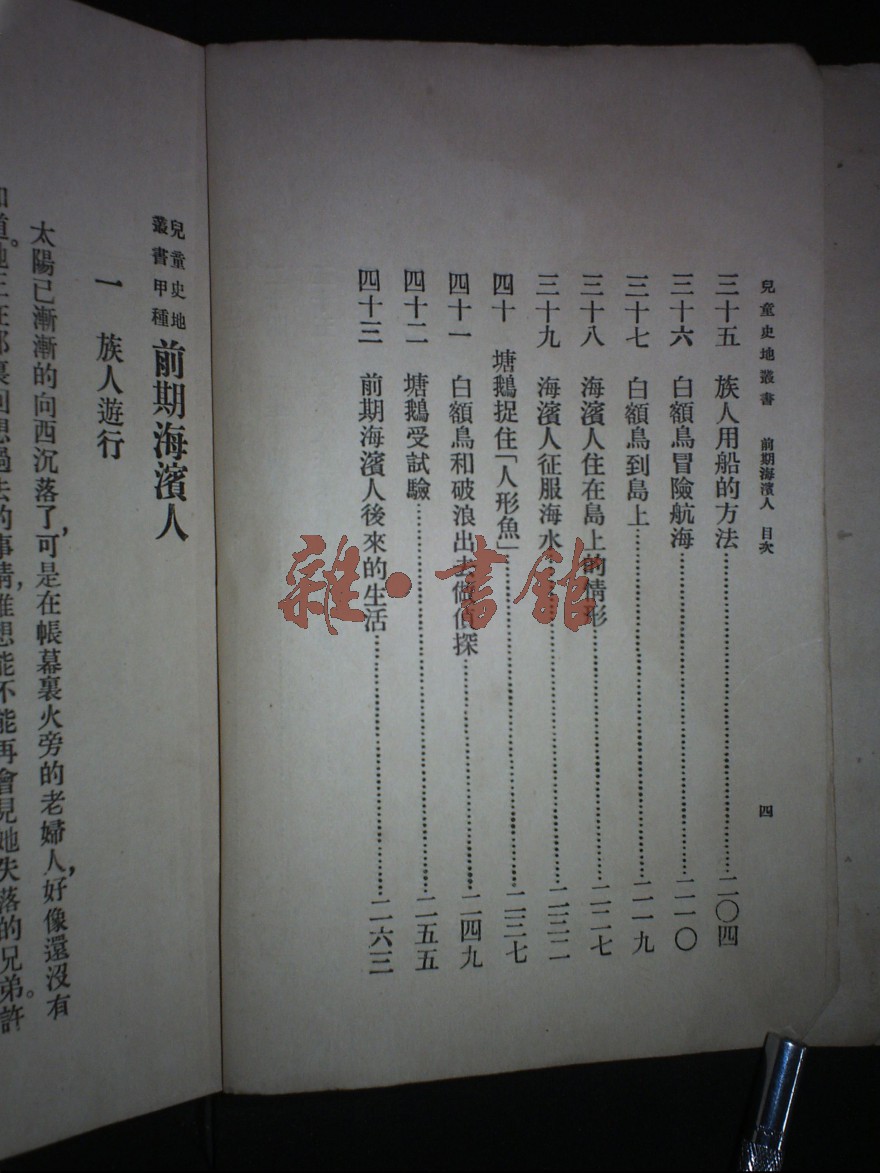 兒童史地叢書 前期海濱人 目次 四
三十五 族人用船的方法……二〇四
三十六 白額鳥冒險航海……二一〇
三十七 白額鳥到島上……二一九
三十八 海濱人住在島上的情形……二二七
三十九 海濱人征服海水……二三二
四十 塘鵝捉住「人形魚」……二三七
四十一 白額鳥和破浪出去做偵探……二四九
四十二 塘鵝受試驗……二五五
四十三 前期海濱人後來的生活……二六三
雜·書館
兒童史地
叢書甲種
前期海濱人
一 族人遊行
太陽已漸漸的向西沉落了，可是在帳幕裏火旁的老婦人，好像還沒有
知道。她正在那裏回想過去的事情，誰想能不能再會見她失落的兄弟。許